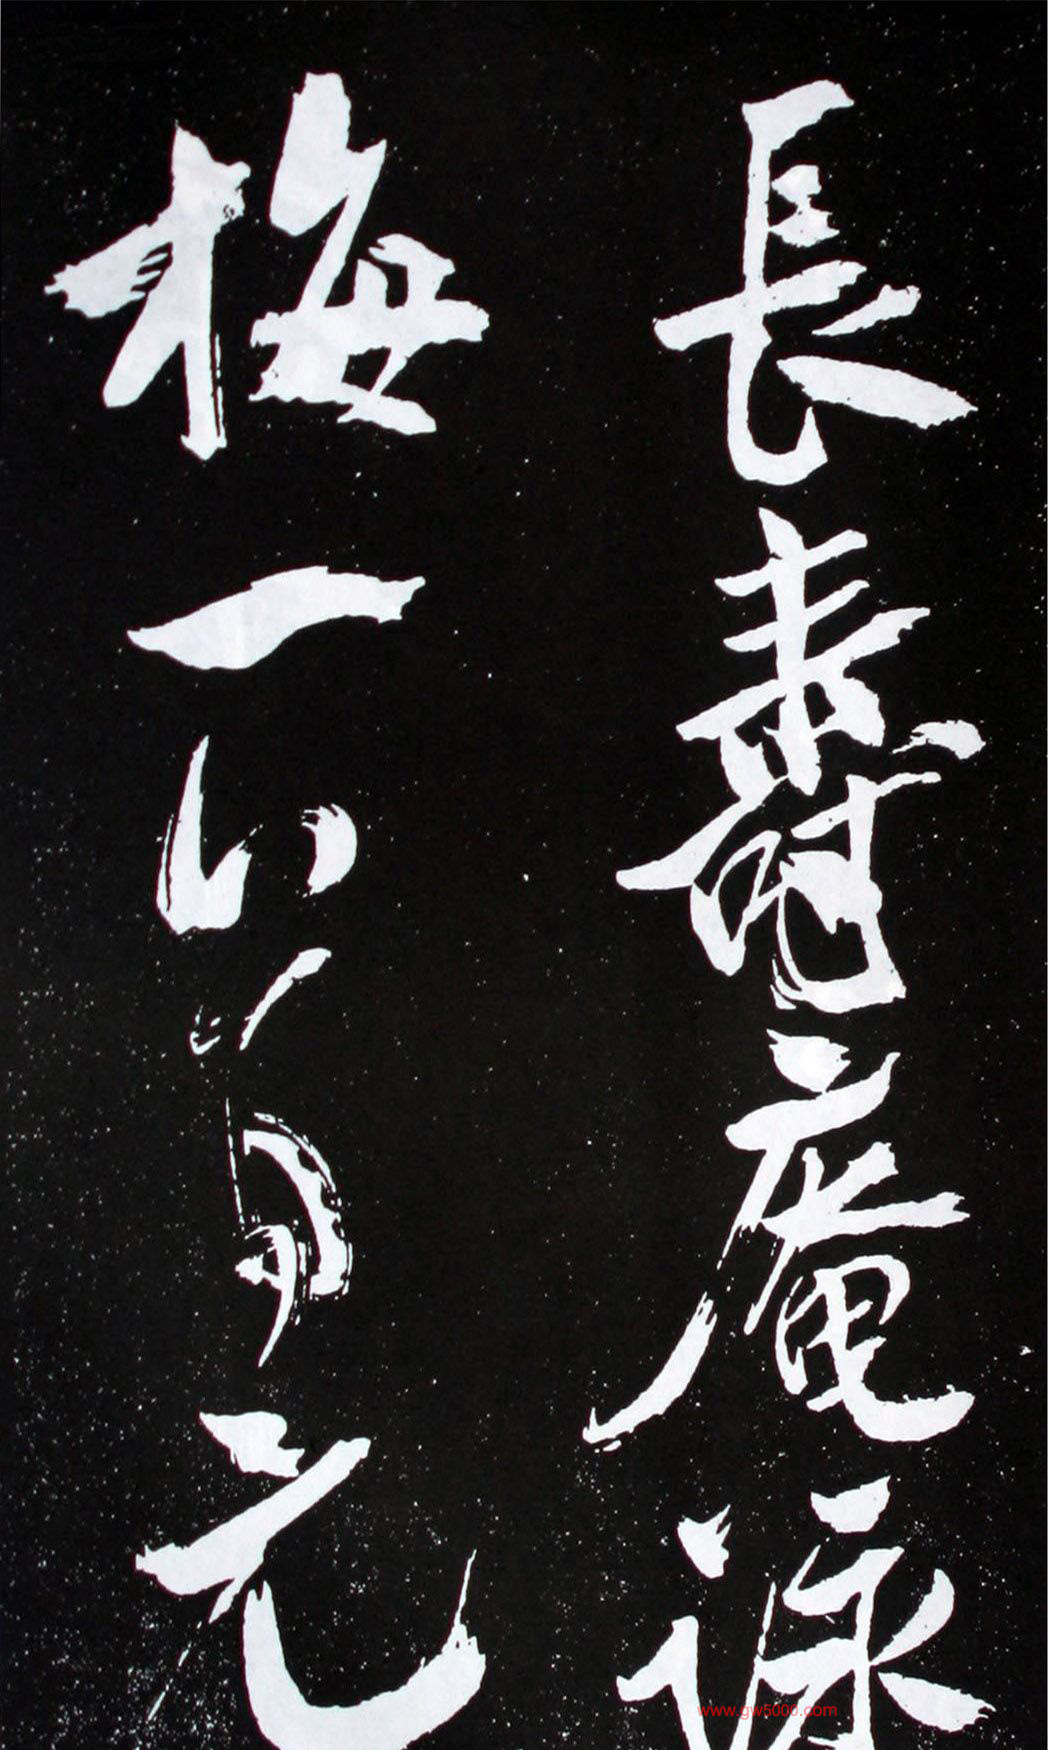 長壽庵詠
梅一以首元
www.gw5000.com